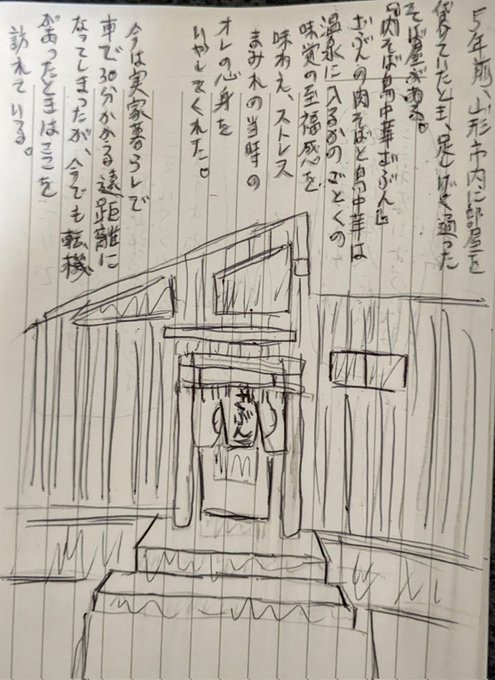 5年前、山形市内に部屋を
借りていたとき、足しげく通った
そば屋がある。
『肉そば鳥中華ざぶん』
ざぶんの肉そばと鳥中華は
温泉に入るかのごとくの
味覚の至福感を
味わえ、ストレス
まみれの当時の
オレの心身を
いやしてくれた。
今は実家暮らしで
車で30分かかる遠距離に
なってしまったが、今でも転機
があったときはここを
訪れている。
ざぶん